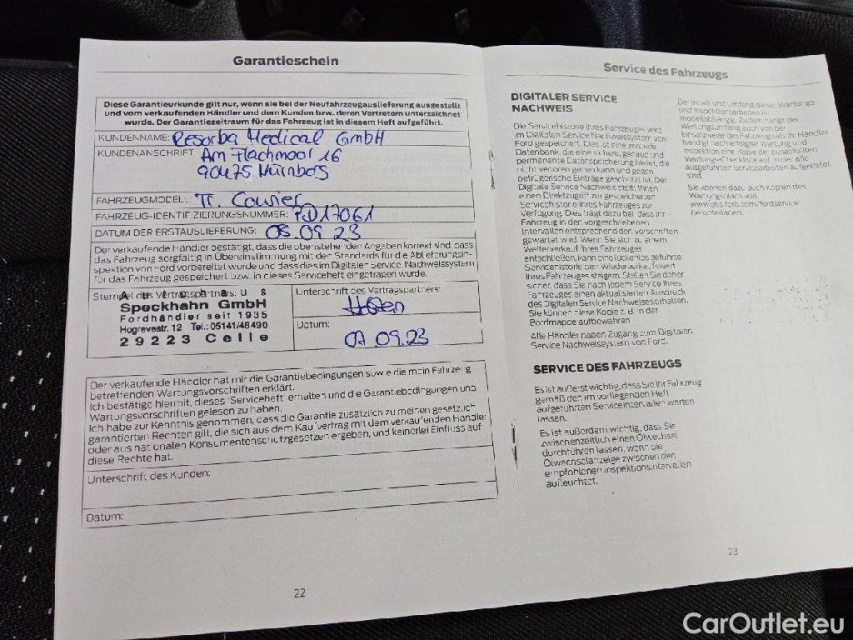 Garantieschein
Diese Garantieurkunde gilt nur, wenn sie bei der Neufahrzeugauslieferung ausgestellt
und vom verkaufenden Händler und dem Kunden bzw. deren Vertretern unterzeichnet
wurde. Der Garantiezeitraum für das Fahrzeug ist in diesem Heft aufgeführt.
KUNDENNAME: Resorba Medical GmbH
KUNDENANSCHRIFT Am Flachmoor 16
90475 Nürnberg
FAHRZEUGMODELL: Tr. Courier
FAHRZEUG-IDENTIFIZIERUNGSNUMMER: PD17061
DATUM DER ERSTAUSLIEFERUNG: 08.09.23
Der verkaufende Händler bestätigt, dass die obenstehenden Angaben korrekt sind, dass
das Fahrzeug sorgfältig in Übereinstimmung mit den Standards für die Ablieferungsin-
spektion von Ford vorbereitet wurde und dass dies im Digitalen Service Nachweissystem
für das Fahrzeug gespeichert bzw. in dieses Serviceheft eingetragen wurde.
Stempel des Vertragspartners:
Speckhahn GmbH
Fordhändler seit 1935
Hogrevestr. 12 Tel.: 05141/48490
29223 Celle
Unterschrift des Vertragspartners:
Datum:
07.09.23
Der verkaufende Händler hat mir die Garantiebedingungen sowie die mein Fahrzeug
betreffenden Wartungsvorschriften erklärt.
Ich bestätige hiermit, dieses 'Serviceheft' erhalten und die Garantiebedingungen und
Wartungsvorschriften gelesen zu haben.
Ich habe zur Kenntnis genommen, dass die Garantie zusätzlich zu meinen gesetzlich
garantierten Rechten gilt, die sich aus dem Kaufvertrag mit dem verkaufenden Händler
oder aus nationalen Konsumentenschutzgesetzen ergeben, und keinerlei Einfluss auf
diese Rechte hat.
Unterschrift des Kunden:
Datum:
22
Service des Fahrzeugs
DIGITALER SERVICE
NACHWEIS
Die Servicehistorie Ihres Fahrzeuges wird
im Digitalen Service Nachweissystem von
Ford gespeichert. Dies ist eine zentrale
Datenbank, die eine sichere, genaue und
permanente Datenspeicherung bietet, die
nicht verloren gehen kann und gegen
betrügerische Einträge geschützt ist. Der
Digitale Service Nachweis stellt Ihnen
einen Direktzugriff zur gespeicherten
Servicehistorie Ihres Fahrzeuges zur
Verfügung. Dies trägt dazu bei, dass Ihr
Fahrzeug in den vorgeschriebenen
Intervallen entsprechend den Vorschriften
gewartet wird. Wenn Sie sich zu einem
Weiterverkauf Ihres Fahrzeuges
entschließen, kann eine lückenlos geführte
Servicehistorie den Wiederverkaufswert
Ihres Fahrzeugs steigern. Stellen Sie daher
sicher, dass Sie nach jedem Service Ihres
Fahrzeuges einen aktualisierten Ausdruck
des Digitalen Service Nachweises erhalten.
Sie können diese Kopie z. B. in der
Bordmappe aufbewahren.
Alle Händler haben Zugang zum Digitalen
Service Nachweissystem von Ford.
SERVICE DES FAHRZEUGS
Es ist äußerst wichtig, dass Sie Ihr Fahrzeug
gemäß den im vorliegenden Heft
aufgeführten Serviceintervallen warten
lassen.
Es ist außerdem wichtig, dass Sie
zwischenzeitlich einen Ölwechsel
durchführen lassen, wenn die
Ölwechselanzeige zwischen den
empfohlenen Inspektionsintervallen
aufleuchtet.
Der Inhalt und Umfang dieser Wartungs-
und Inspektionsarbeiten ist
modellabhängig. Zudem hängt der
Wartungsumfang auch von der
Einsatzweise des Fahrzeugs ab. Ihr Händler
händigt nach erfolgter Wartung und
Inspektion eine Kopie der ausgefüllten
Wartungs-Checkliste aus, in der alle
ausgeführten Servicearbeiten aufgelistet
sind.
Sie können dazu auch Kopien des
Wartungsplans von
www.etis.ford.com/fordservice
herunterladen.
23
CarOutlet.eu